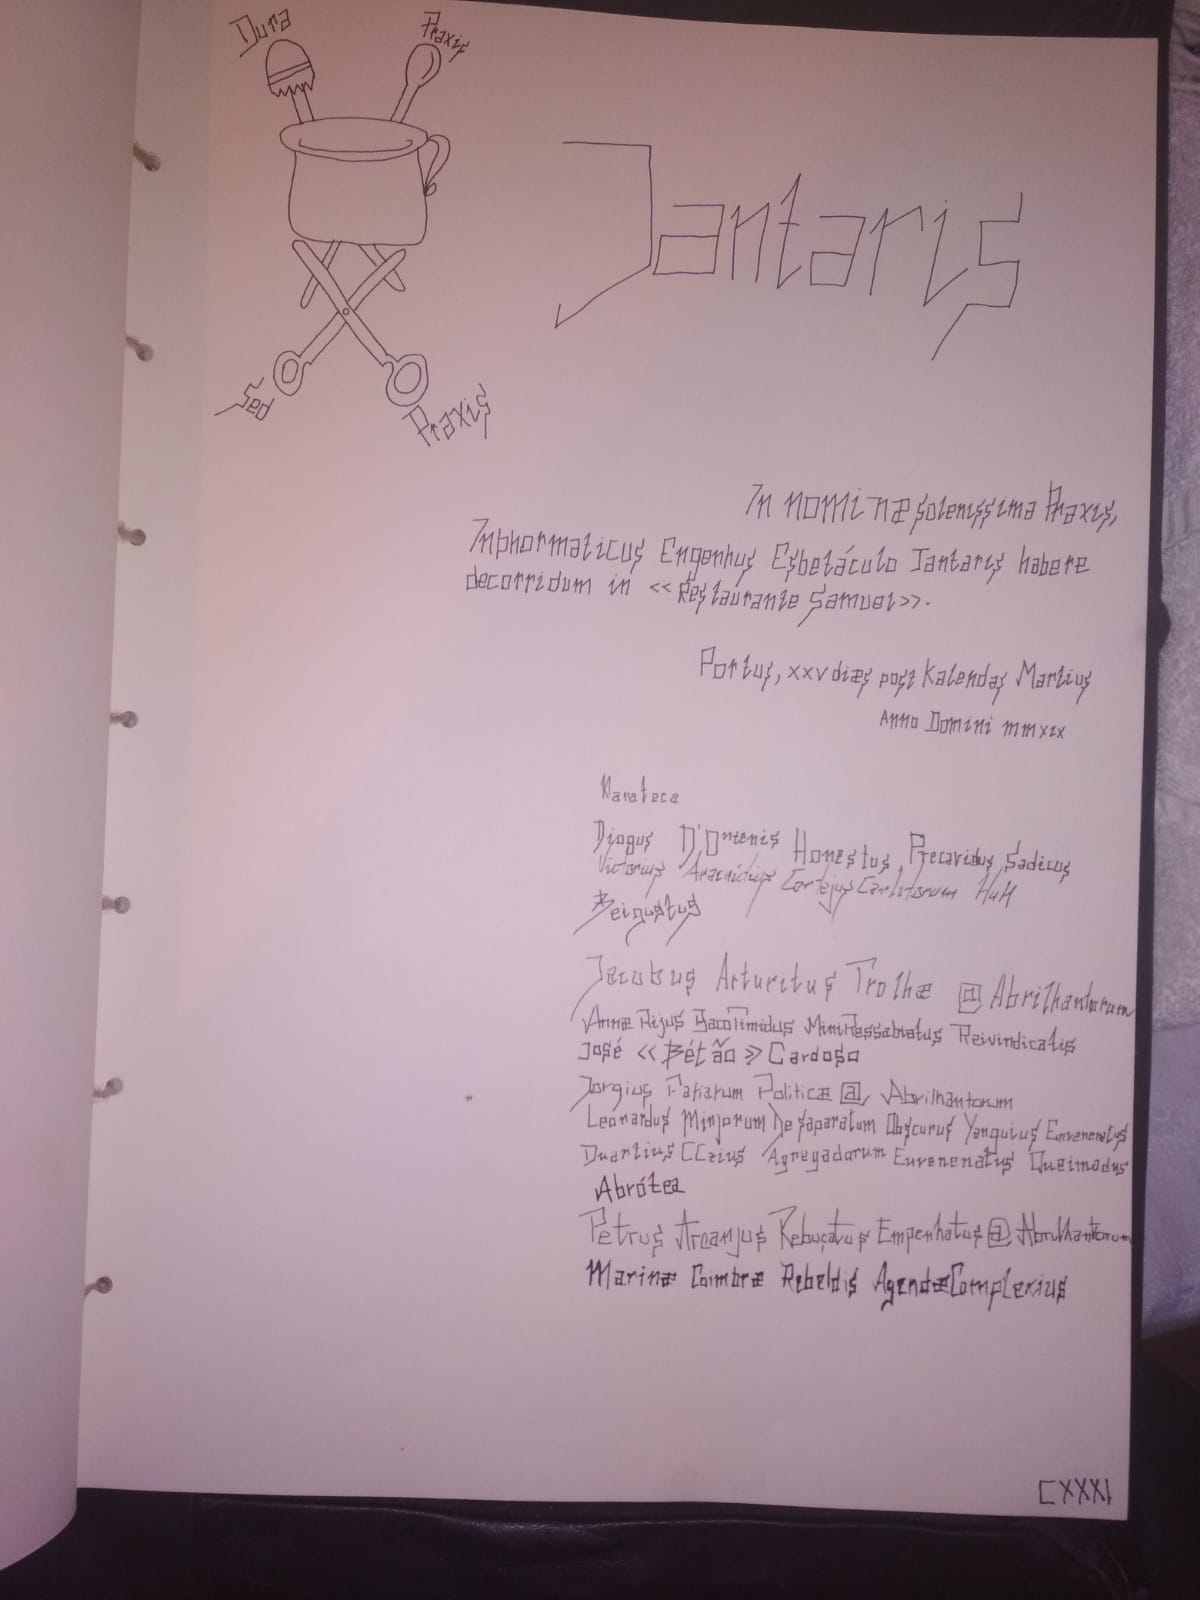 Dura
Praxis
Sed
Praxis
Jantaris
In nominæ solenissima Praxis,
Inphormaticus Engenhus Esbetáculo Jantaris habere
decorridum in «Restaurante Samuel».
Portus, xxv diæs post Kalendas Martius
Anno Domini mmxix
Manateca
Diogus D'Ontenis Honestus Precavidus Sadicus
Victorius Aracnídius Cortejus Carlitorum HuH
Beigustus
Jacobus Arturitus Trolhæ @ Abrilhantorum
Annæ Rijus SacoTimidus MiniRessabiatus Reivindicatis
José «Bétão» Cardoso
Jorgius Politicæ @ Abrilhantorum
Leonardus Minjorum Desaparatum Obscurus Yanguius Envenenatus
Duartius CCzius Agregadorum Envenenatus Queimadus
Abrótea
Petrus Arcanjus Rebuçatus Empenhatus @ Abrilhantorum
Marinæ Coimbræ Rebeldis AgendæComplexius
CXXXI